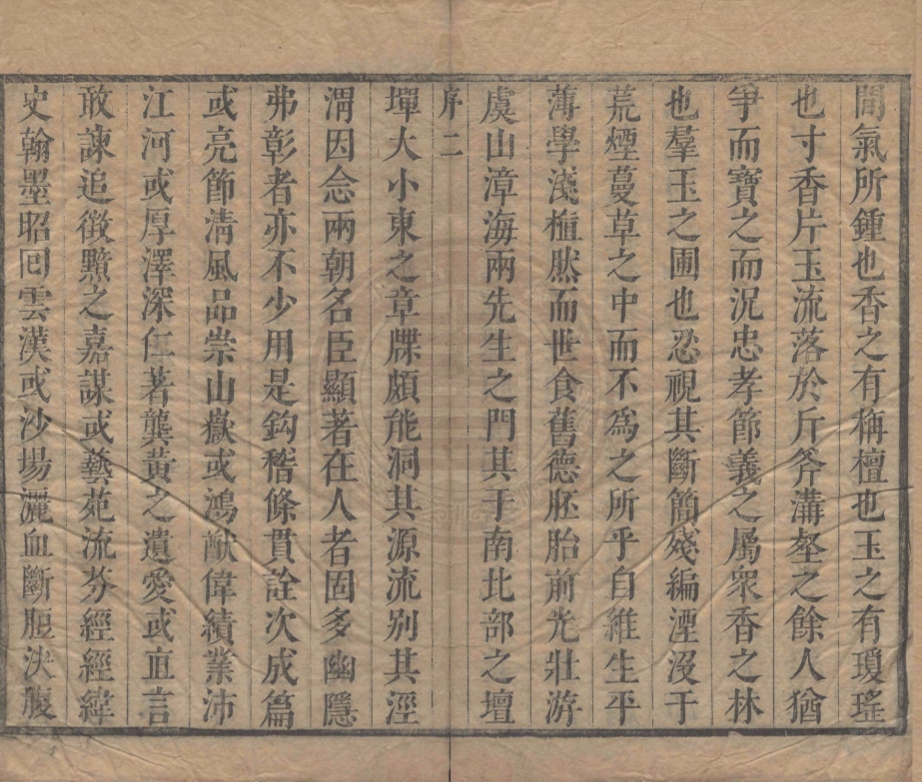 間氣所鍾也香之有栴檀也玉之有瓊瑤
也寸香片玉流落於斤斧溝壑之餘人猶
爭而寶之而況忠孝節義之屬衆香之林
也羣玉之圃也忍視其斷簡殘編湮沒于
荒煙蔓草之中而不為之所乎自維生平
薄學淺植然而世食舊德胚胎前光壯游
虞山漳海兩先生之門其于南北部之壇
序二
墠大小東之章牒頗能洞其源流別其涇
渭因念兩朝名臣顯著在人者固多幽隱
弗彰者亦不少用是鈎稽條貫詮次成篇
或亮節清風品崇山嶽或鴻猷偉績業沛
江河或厚澤深仁著龔黃之遺愛或直言
敢諫追徵黯之嘉謀或藝苑流芬經經緯
史翰墨昭回雲漢或沙場灑血斷脰決腹